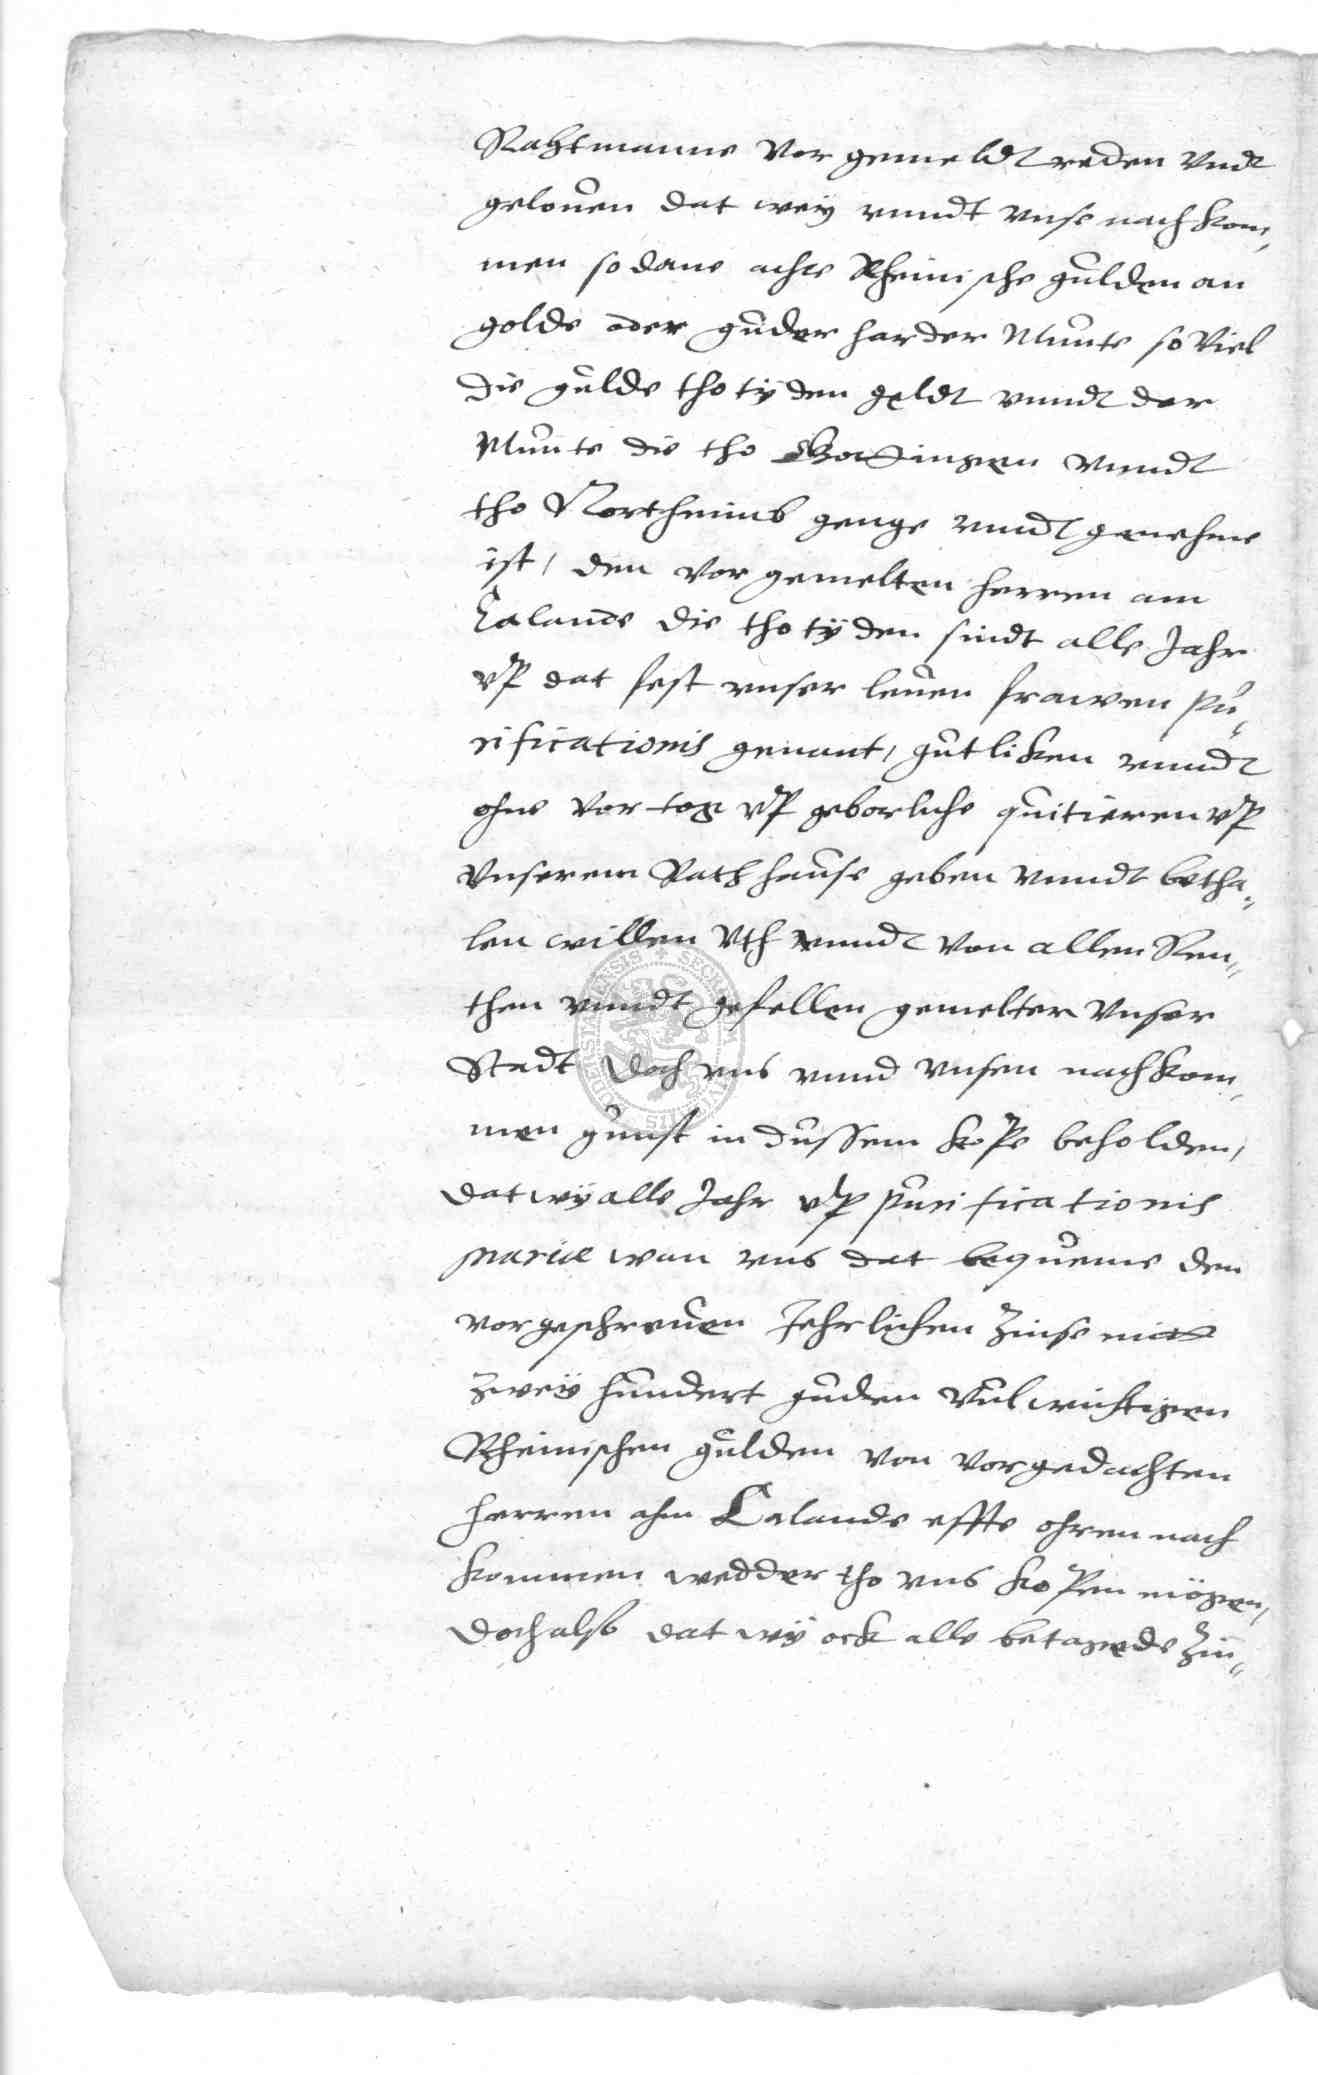 Rahtmanne vor gemeldt reden vndt
gelouen dat wey vnndt vnse nachkom,
men sodane achte Rheinische gulden an
golde oder guder harder Munte so viel
die gulde tho tyden geldt vnndt der
Munte die tho Gottingen vnndt
tho Northeimb genge vnndt genehme
ist, den vor gemelten herren am
Calande die tho tyden sindt alle Jahr
vp dat fest vnser leuen frawen Pu„
rificationis genant, gutliken vnndt
ohne vortog vp geborliche quitieren vp
vnserem Rathhause geben vnndt betha„
len willen vth vnndt von allen Ren„
then vnndt gefellen gemelter vnser
Stadt doch vns vnnd vnsen nachkom,
men gunst in dussem kope beholden,
dat wy alle Jahr vp purificationis
mariæ wan vns dat bequeme den
vorgeschreuen Jehrlichen Zinse mitt
zwey hundert guden vulwichtigen
Rheinischen gulden von vorgedachten
herren ahm Calande effte ohren nach
kommen wedder tho vns kopen mögen,
doch also dat wy ock alle betagede Zin„
SECR